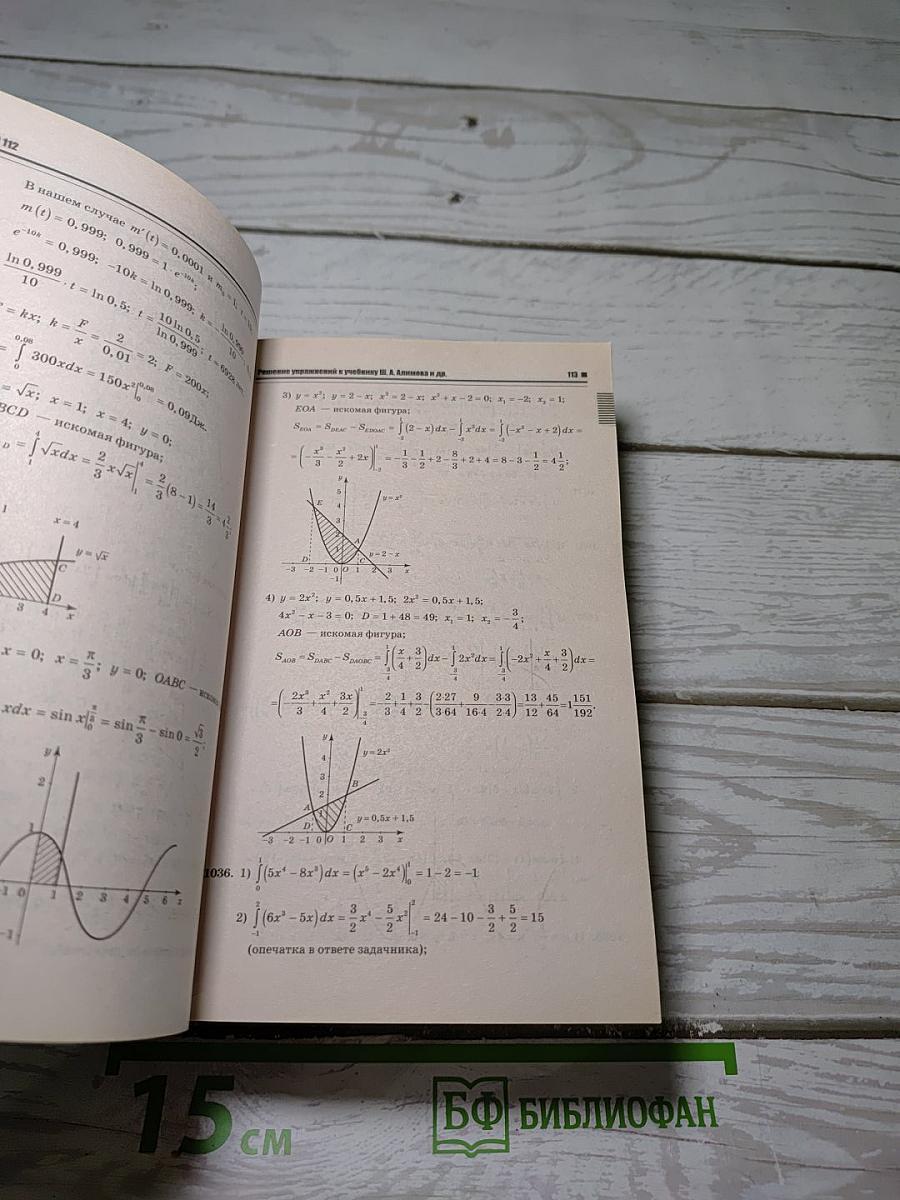 112
В нашем случае m′(t) = 0,0001 и m₀ = 1,
m(t) = 0,999; 0,999 = 1 · e^(−10k);
e^(−10k) = 0,999; −10k = ln 0,999; k = − ln 0,999 / 10
ln 0,999 / 10 · t = ln 0,5; t = 10 ln 0,5 / ln 0,999; t ≈ 6928
= kx; k = F/x = 2/0,01 = 2; F = 200x;
= ∫₀^0,08 300xdx = 150x²|₀^0,08 = 0,09Дж.
= √x; x = 1; x = 4; y = 0;
BCD — искомая фигура;
D = ∫₁⁴ √x dx = 2/3 x√x|₁⁴ = 2/3 (8 − 1) = 14/3 = 4 2/3;
x = 4
y = √x
C
D
3 4 x
x = 0; x = π/3; y = 0; OABC —
xdx = sin x|₀^(π/3) = sin π/3 − sin 0 = √3/2;
y
2
1
−1 0 1 2 3 4 5 6 x
−1
Решение упражнений к учебнику Ш. А. Алимова и др. 113
3) y = x²; y = 2 − x; x² = 2 − x; x² + x − 2 = 0; x₁ = −2; x₂ = 1;
EOA — искомая фигура;
S_EOA = S_DEAC − S_EDOAC = ∫₋₂¹ (2 − x)dx − ∫₋₂¹ x²dx = ∫₋₂¹ (−x² − x + 2)dx =
= (− x³/3 − x²/2 + 2x)|₋₂¹ = − 1/3 − 1/2 + 2 − 8/3 + 2 + 4 = 8 − 3 − 1/2 = 4 1/2;
y
5
E 4 y = x²
3
2 A
D 1 C y = 2 − x
−3 −2 −1 0 O 1 2 3 x
−1
4) y = 2x²; y = 0,5x + 1,5; 2x² = 0,5x + 1,5;
4x² − x − 3 = 0; D = 1 + 48 = 49; x₁ = 1; x₂ = − 3/4;
AOB — искомая фигура;
S_AOB = S_DABC − S_DAOBC = ∫₋₃/₄¹ (x/4 + 3/2)dx − ∫₋₃/₄¹ 2x²dx = ∫₋₃/₄¹ (−2x² + x/4 + 3/2)dx =
= (− 2x³/3 + x²/4 + 3x/2)|₋₃/₄¹ = − 2/3 + 1/4 + 3/2 − (2·27/3·64 + 9/16·4 − 3·3/2·4) = 13/12 + 45/64 = 1 151/192.
y
4 y = 2x²
3
2 B
A 1
D C y = 0,5x + 1,5
−3 −2 −1 0 O 1 2 3 x
1036. 1) ∫₀¹ (5x⁴ − 8x³)dx = (x⁵ − 2x⁴)|₀¹ = 1 − 2 = −1
2) ∫₋₁² (6x³ − 5x)dx = 3/2 x⁴ − 5/2 x²|₋₁² = 24 − 10 − 3/2 + 5/2 = 15
(опечатка в ответе задачника);
15 см
БФ БИБЛИОФАН